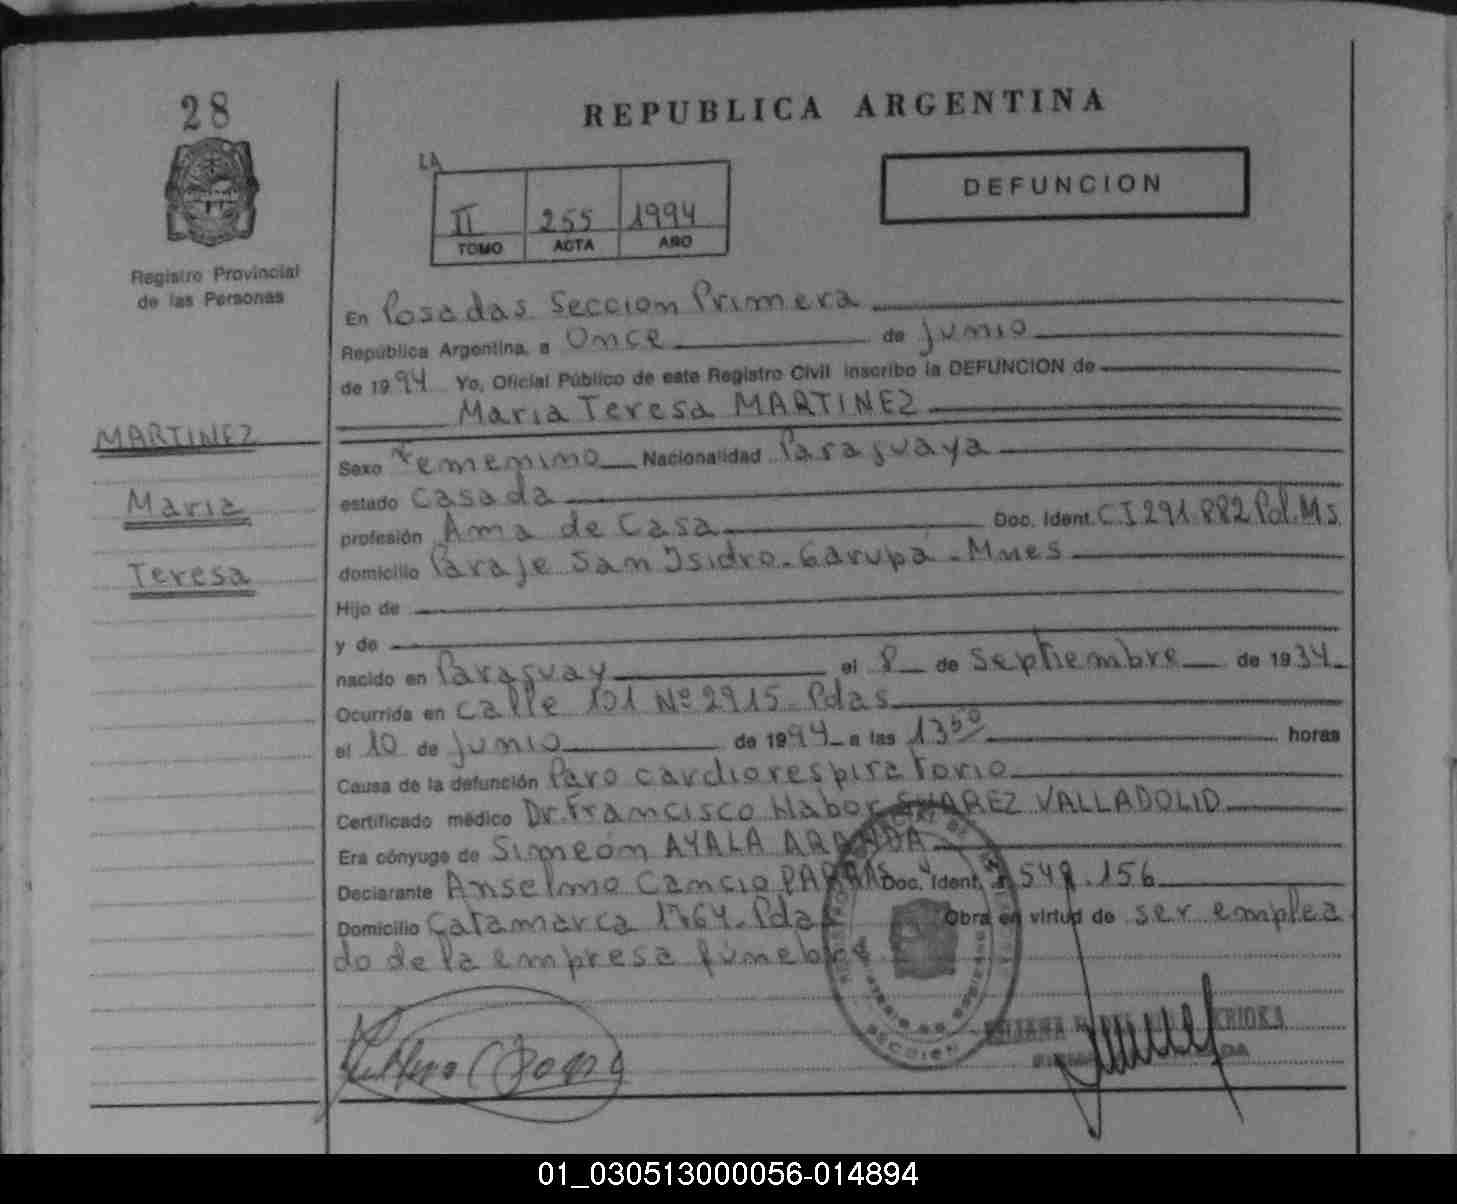 28
REPUBLICA ARGENTINA
LA
II 255 1994
TOMO ACTA AÑO
DEFUNCION
Registro Provincial
de las Personas
En Posadas Seccion Primera
República Argentina, a Once de junio
de 1994 Yo, Oficial Público de este Registro Civil inscribo la DEFUNCION de
Maria Teresa MARTINEZ
MARTINEZ
Maria
Teresa
Sexo Femenino Nacionalidad Paraguaya
estado Casada
profesión Ama de Casa Doc. Ident. C.I 291.882 Pol.Ms.
domicilio Paraje San Isidro - Garupá - Mnes
Hijo de
y de
nacido en Paraguay el 8 de Septiembre de 1934
Ocurrida en calle 101 Nº 2915 - Pdas
el 10 de junio de 1994 a las 13 50 horas
Causa de la defunción Paro cardiorespiratorio
Certificado médico Dr. Francisco Nabor SUAREZ VALLADOLID
Era cónyuge de Simeón AYALA ARANDA
Declarante Anselmo Cancio Doc. Ident. 549.156
Domicilio Catamarca 1764 - Pda Obra en virtud de ser emplea
do de la empresa fúnebre
SECCION
01_030513000056-014894